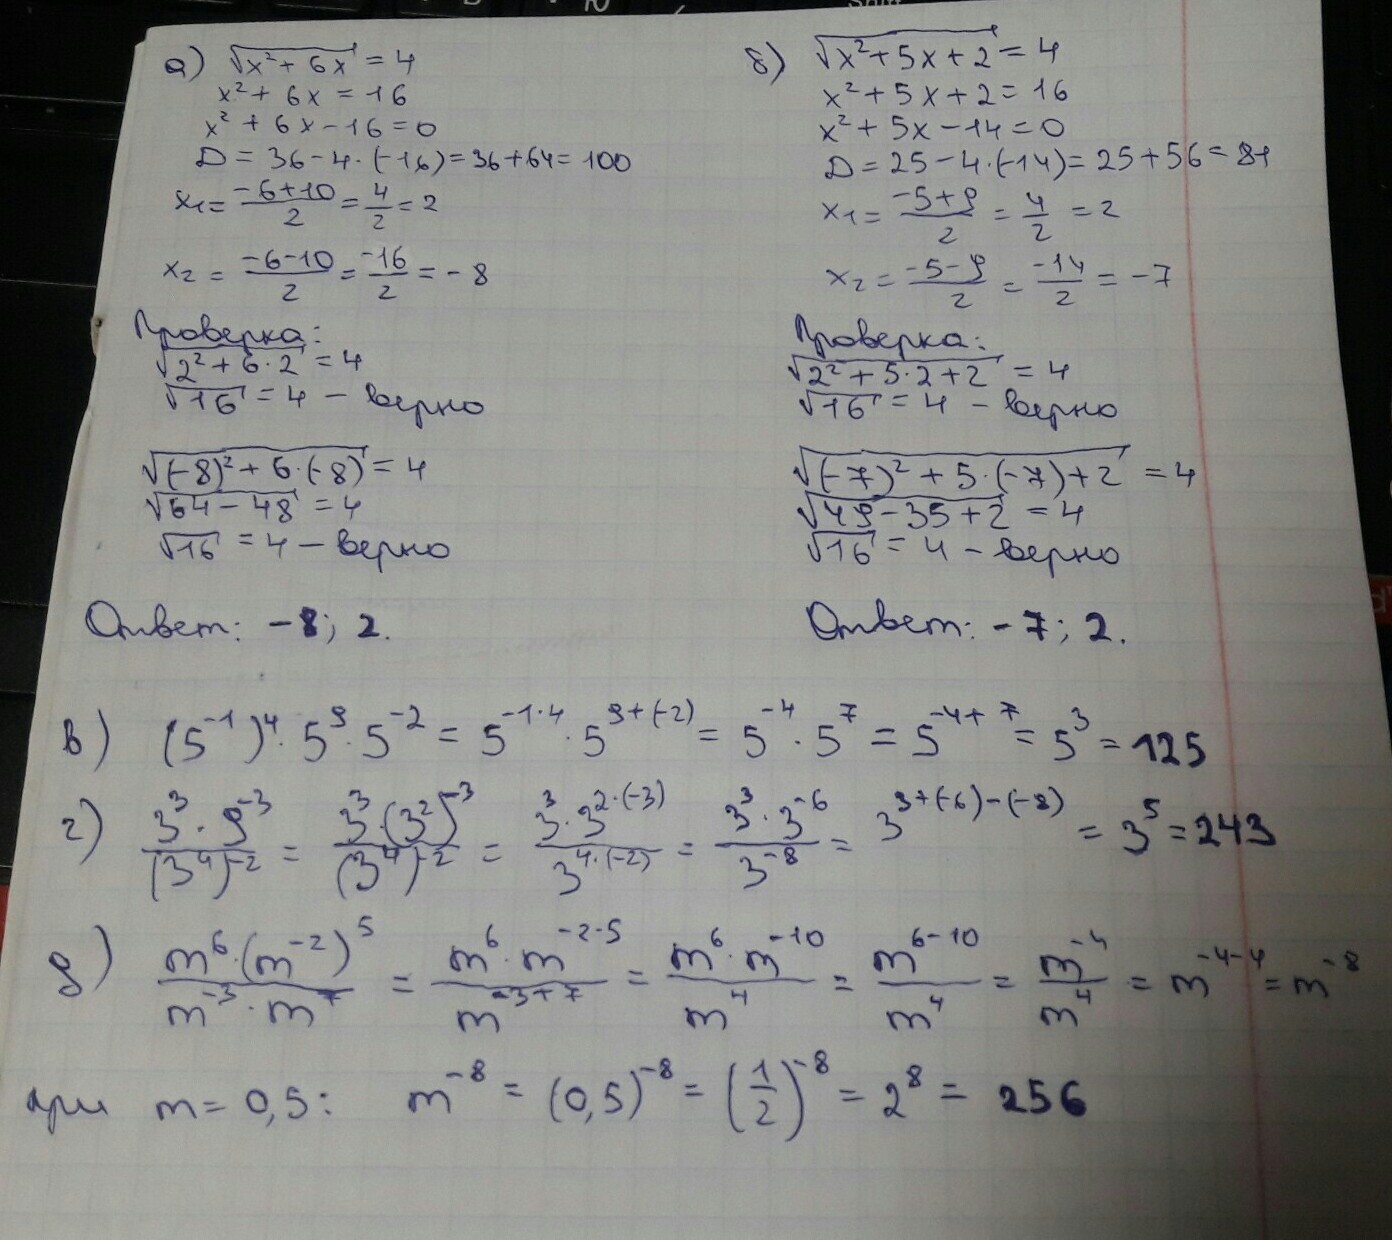 а) √(x² + 6x) = 4
x² + 6x = 16
x² + 6x - 16 = 0
D = 36 - 4·(-16) = 36 + 64 = 100
x₁ = (-6+10)/2 = 4/2 = 2
x₂ = (-6-10)/2 = -16/2 = -8
Проверка:
√(2² + 6·2) = 4
√16 = 4 - верно
√((-8)² + 6·(-8)) = 4
√(64 - 48) = 4
√16 = 4 - верно
Ответ: -8; 2.
б) √(x² + 5x + 2) = 4
x² + 5x + 2 = 16
x² + 5x - 14 = 0
D = 25 - 4·(-14) = 25 + 56 = 81
x₁ = (-5+9)/2 = 4/2 = 2
x₂ = (-5-9)/2 = -14/2 = -7
Проверка:
√(2² + 5·2 + 2) = 4
√16 = 4 - верно
√((-7)² + 5·(-7) + 2) = 4
√(49 - 35 + 2) = 4
√16 = 4 - верно
Ответ: -7; 2.
в) (5⁻¹)⁴ · 5⁹ · 5⁻² = 5^(-1·4) · 5^(9+(-2)) = 5⁻⁴ · 5⁷ = 5^(-4+7) = 5³ = 125
г) (3³ · 9⁻³)/(3⁴)⁻² = (3³ · (3²)⁻³)/(3⁴)⁻² = (3³ · 3^(2·(-3)))/3^(4·(-2)) = (3³ · 3⁻⁶)/3⁻⁸ = 3^(3+(-6)-(-8)) = 3⁵ = 243
д) (m⁶ · (m⁻²)⁵)/(m⁻³ · m⁷) = (m⁶ · m^(-2·5))/m^(-3+7) = (m⁶ · m⁻¹⁰)/m⁴ = m^(6-10)/m⁴ = m⁻⁴/m⁴ = m^(-4-4) = m⁻⁸
при m = 0,5: m⁻⁸ = (0,5)⁻⁸ = (1/2)⁻⁸ = 2⁸ = 256